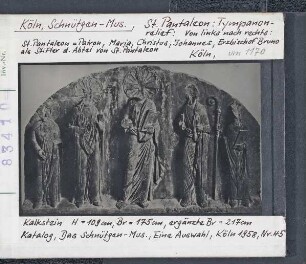 Köln, Schnütgen-Mus., St. Pantaleon: Tympanon-
relief: Von links nach rechts:
St. Pantaleon = Patron, Maria, Christus, Johannes, Erzbischof Bruno
als Stifter d. Abtei von St. Pantaleon
Köln, um 1170
83410
Kalkstein H = 108cm, Br = 175cm, ergänzte Br = 217cm
Katalog, Das Schnütgen-Mus., Eine Auswahl, Köln 1958, Nr. 45